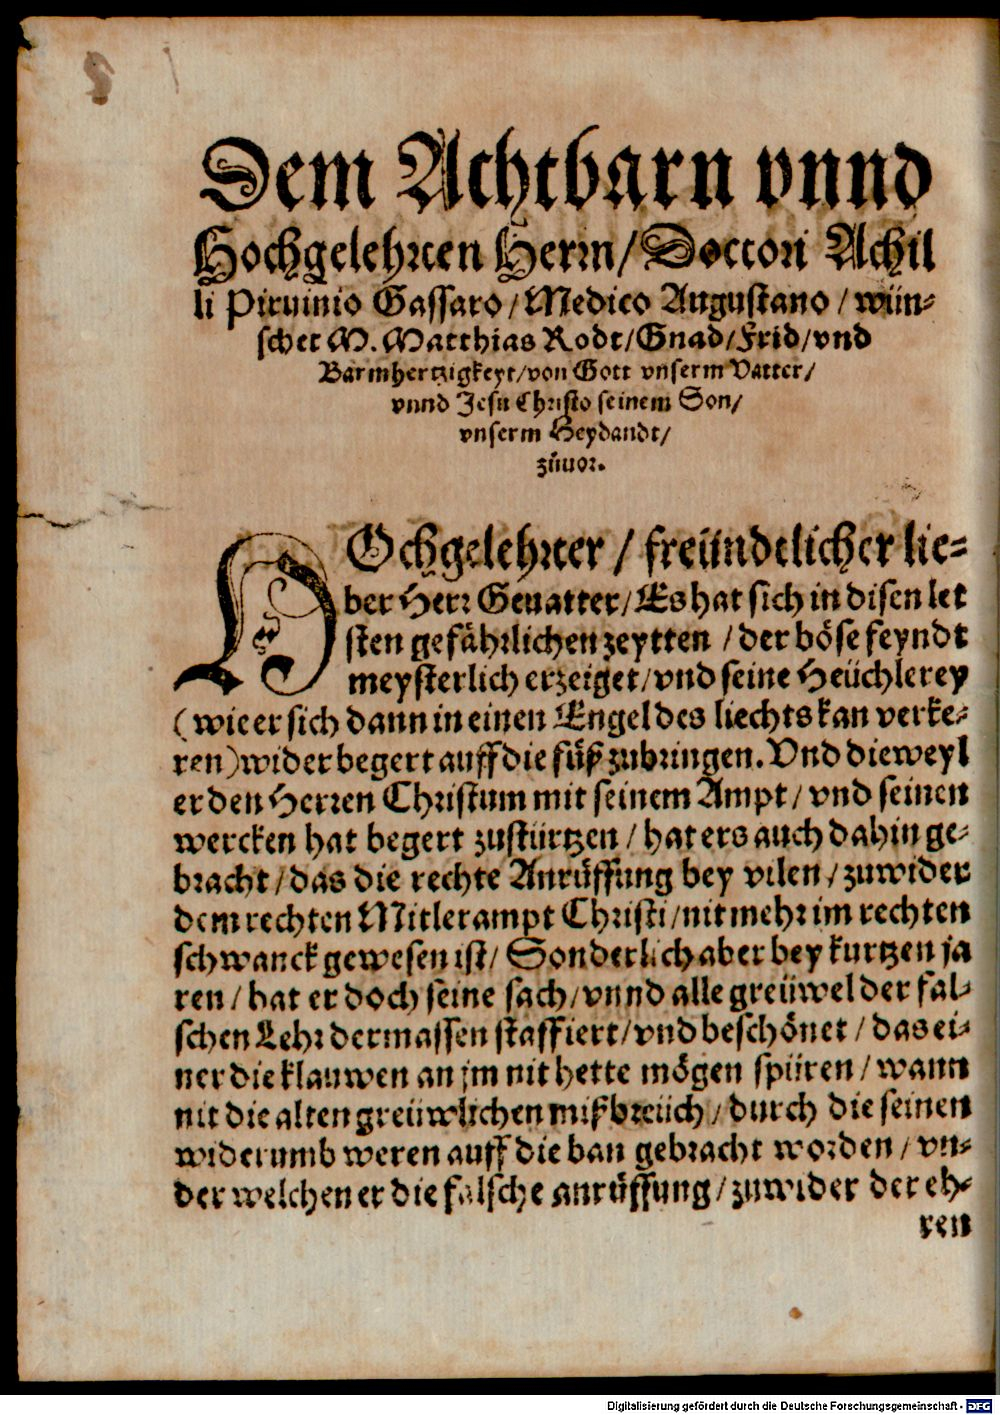 Dem Achtbarn vnnd
Hochgelehrten Herrn/ Doctori Achil
li Pirminio Gassaro/ Medico Augustano/ wün-
schet M. Matthias Rodt/ Gnad/ Frid/ vnd
Barmhertzigkeyt/ von Gott vnserm Vatter/
vnnd Jesu Christo seinem Son/
vnserm Heydandt/
zůuor.
HOchgelehrter/ freündtlicher lie-
ber Herr Geuatter/ Es hat sich in disen let
sten gefährlichen zeytten/ der böse feyndt
meysterlich erzeiget/ vnd seine Heüchlerey
(wie er sich dann in einen Engel des liechts kan verke-
ren) wider begert auff die füß zubringen. Vnd dieweyl
er den Herren Christum mit seinem Ampt/ vnd seinen
wercken hat begert zustürtzen/ hat ers auch dahin ge-
bracht/ das die rechte Anrůffung bey vilen/ zuwider
dem rechten Mitlerampt Christi/ nit mehr im rechten
schwanck gewesen ist/ Sonderlich aber bey kurtzen ja
ren/ hat er doch seine sach/ vnnd alle greüwel der fal-
schen Lehr dermassen staffiert/ vnd beschönet/ das ei-
ner die klauwen an jm nit hette mögen spüren/ wann
nit die alten greüwlichen mißbreüch/ durch die seinen
widerumb weren auff die ban gebracht worden/ vn-
der welchen er die falsche anrůffung/ zuwider der eh-
ren
Digitalisierung gefördert durch die Deutsche Forschungsgemeinschaft - DFG